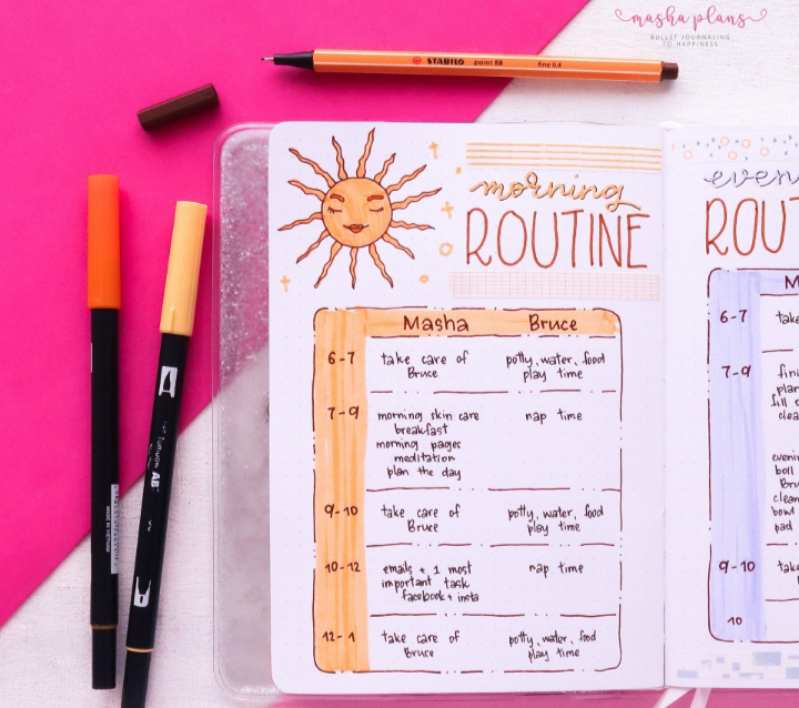 masha plans
BULLET JOURNALING
TO HAPPINESS
STABILO point 88 fine 0.4
morning
ROUTINE
Masha Bruce
6-7 take care of potty, water, food
Bruce play time
7-9 morning skin care nap time
breakfast
morning pages
meditation
plan the day
9-10 take care of potty, water, food
Bruce play time
10-12 emails + 1 most nap time
important task
facebook + insta
12-1 take care of potty, water, food
Bruce play time
even
ROUT
M
6-7 take
7-9 fini
plan
fill c
clea
evening
boil
Bru
clean
bowl
pad
9-10 take
10
AB
MADE IN VIETNAM